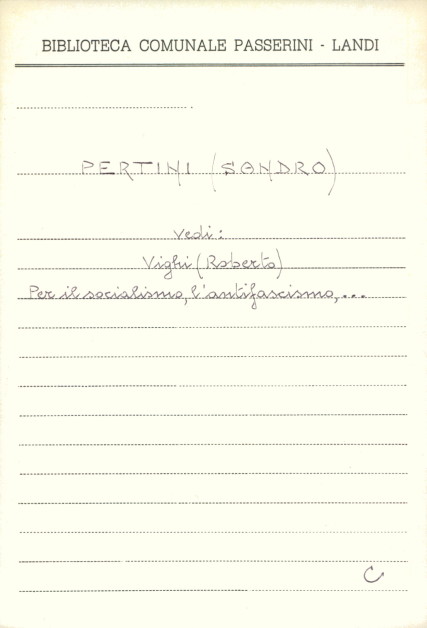 BIBLIOTECA COMUNALE PASSERINI - LANDI
PERTINI (SANDRO)
Vedi:
Vighi (Roberto)
Per il socialismo, l'antifascismo,...
C